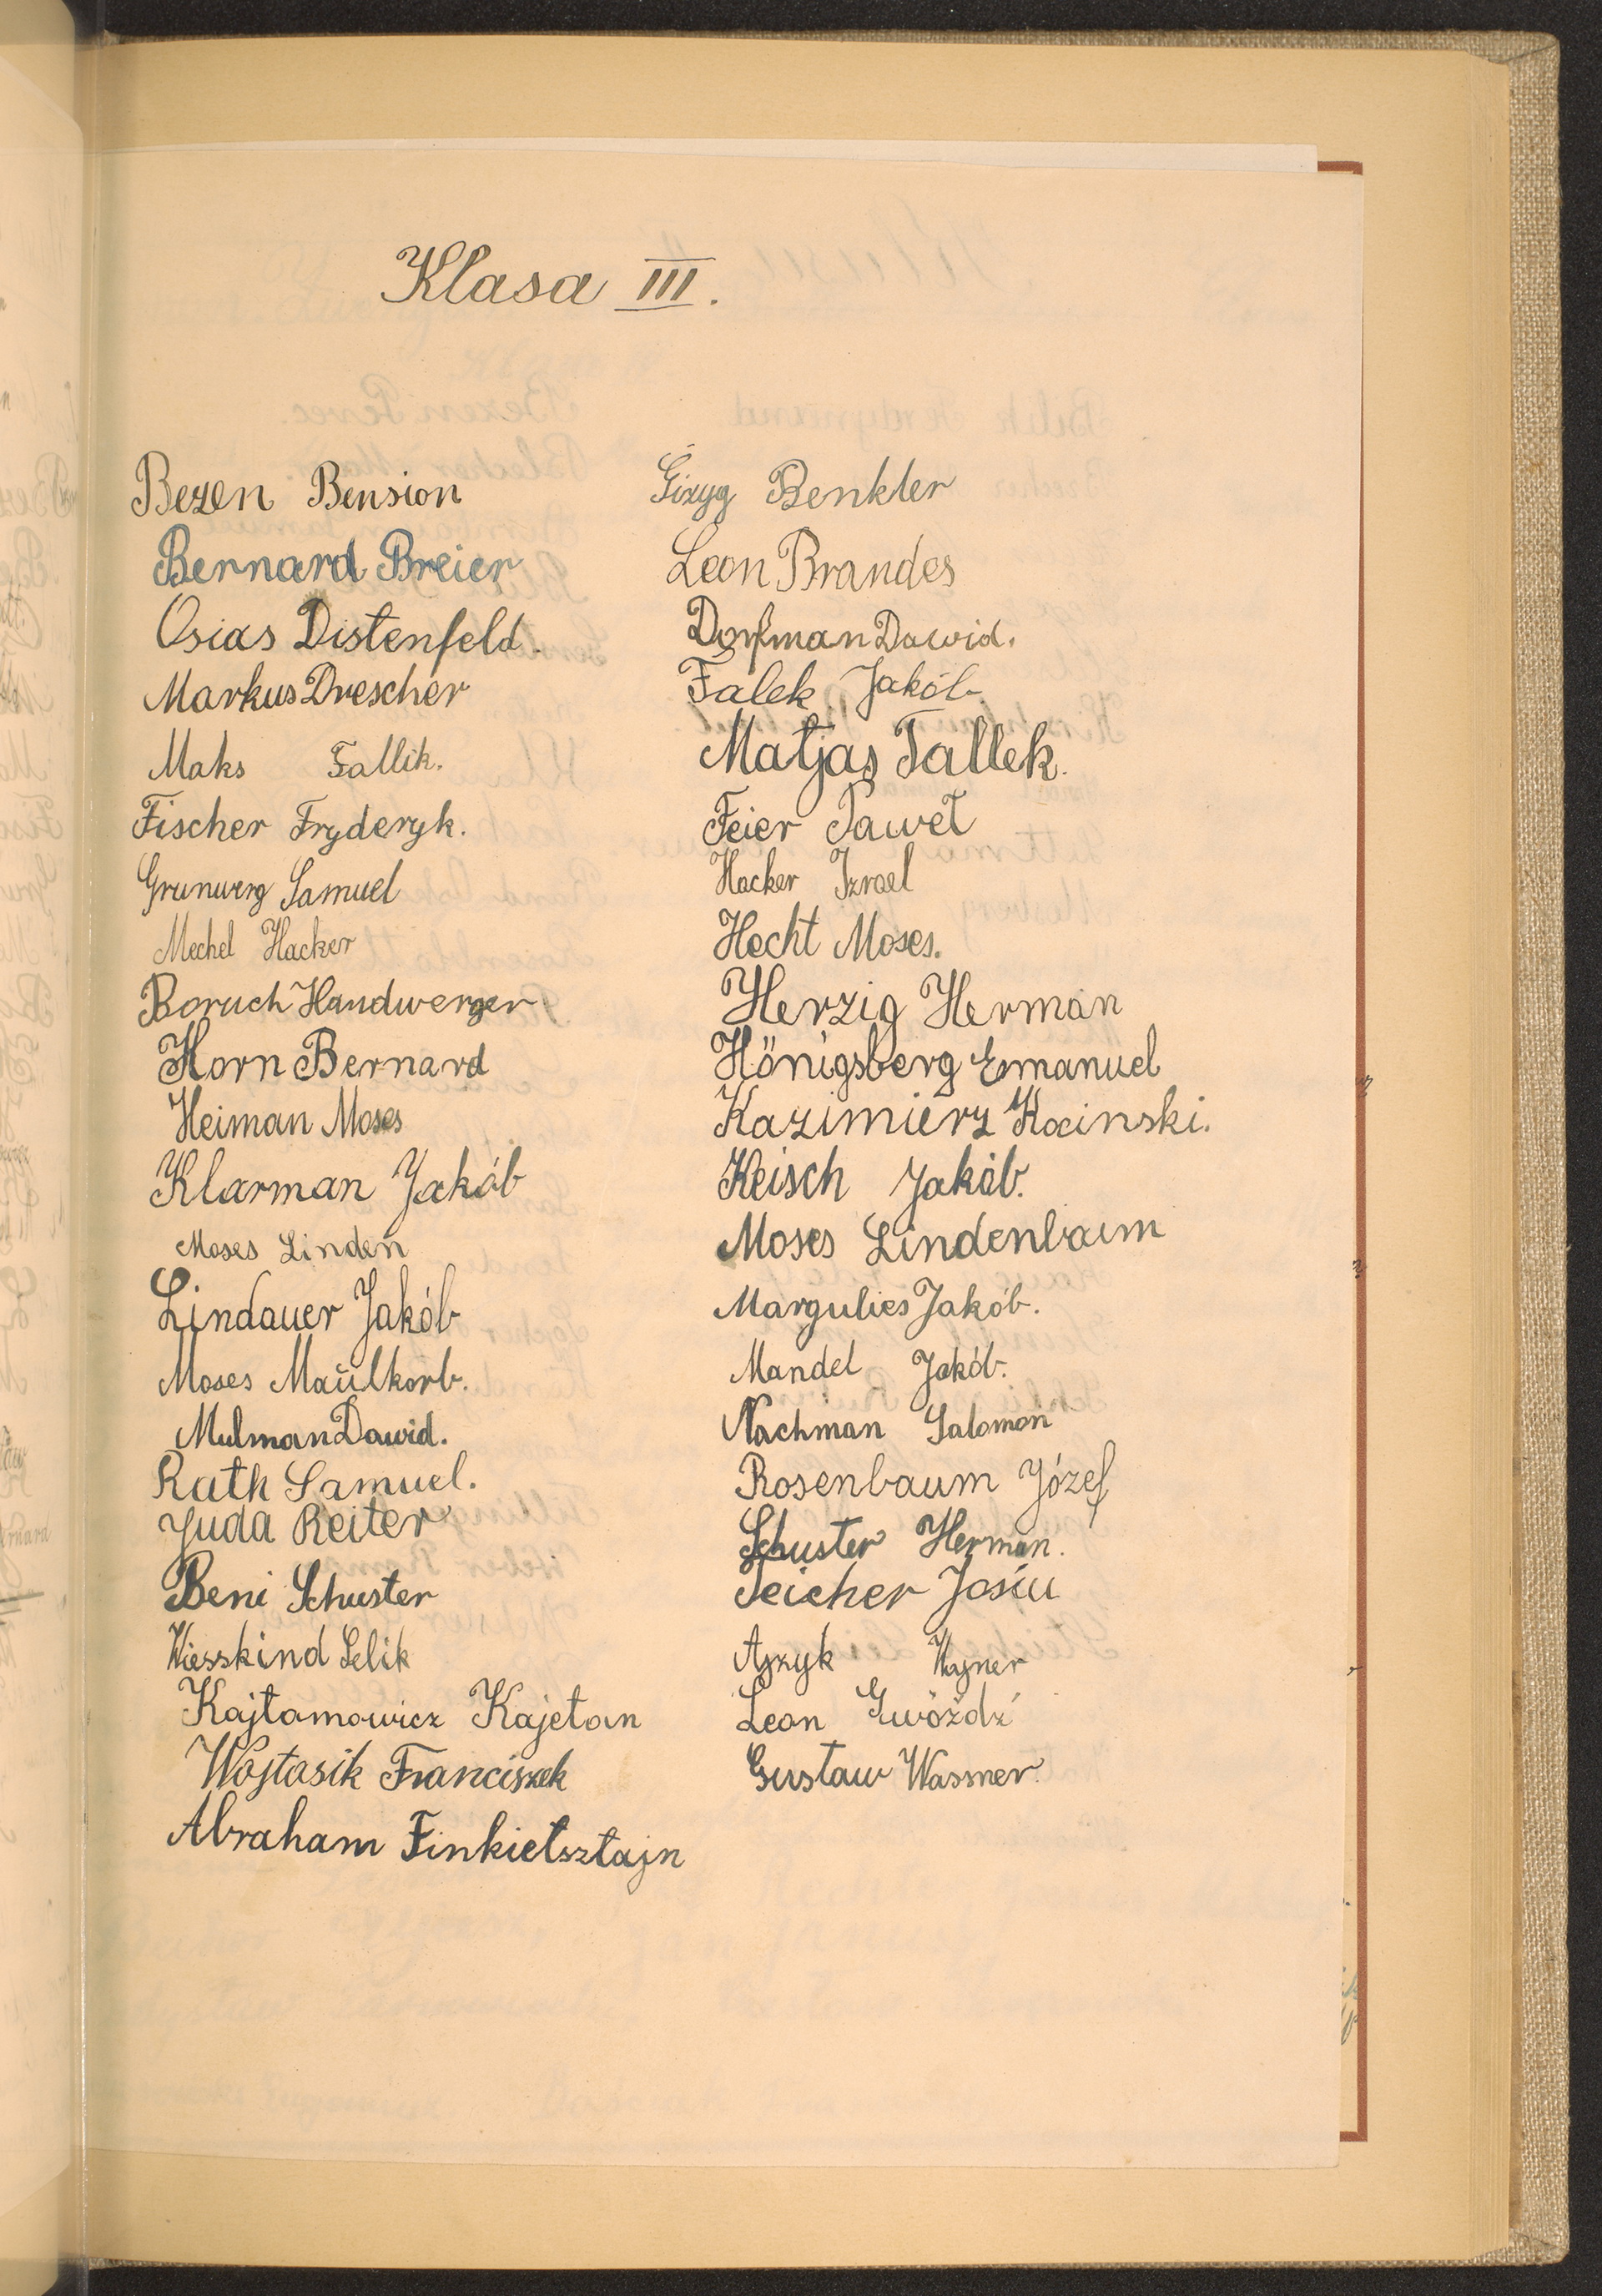 Klasa III.
Bezen Bension
Bernard Breier
Osias Distenfeld.
Markus Drescher
Maks Fallik.
Fischer Fryderyk.
Grunwerg Samuel
Mechel Hacker
Boruch Handwerger
Horn Bernard
Heiman Moses
Klarman Jakób
Moses Linden
Lindauer Jakób
Moses Maŭlkorb.
Mulman Dawid.
Rath Samuel.
Juda Reiter
Beni Schuster
Wiesskind Selik
Kajtamowicz Kajetan
Wojtasik Franciszek
Abraham Finkielsztajn
Benkler
Leon Brandes
Dorfman Dawid.
Falek Jakób
Matjas Fallek.
Feier Paweł
Hacker Izrael
Hecht Moses.
Herzig Herman
Hönigsberg Emanuel
Kazimierz Kocinski.
Keisch Jakób.
Moses Lindenbaum
Margulies Jakób.
Mandel Jakób.
Nachman Salomon
Rosenbaum Józef
Schuster Herman.
Teicher Josiu
Ajzyk Wajner
Leon Gwóźdź
Gustaw Wassner